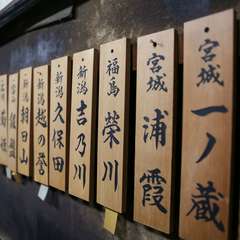 宮城 一ノ蔵
宮城 浦霞
福島 榮川
新潟 吉乃川
新潟 久保田
新潟 越の誉
新潟 朝日山